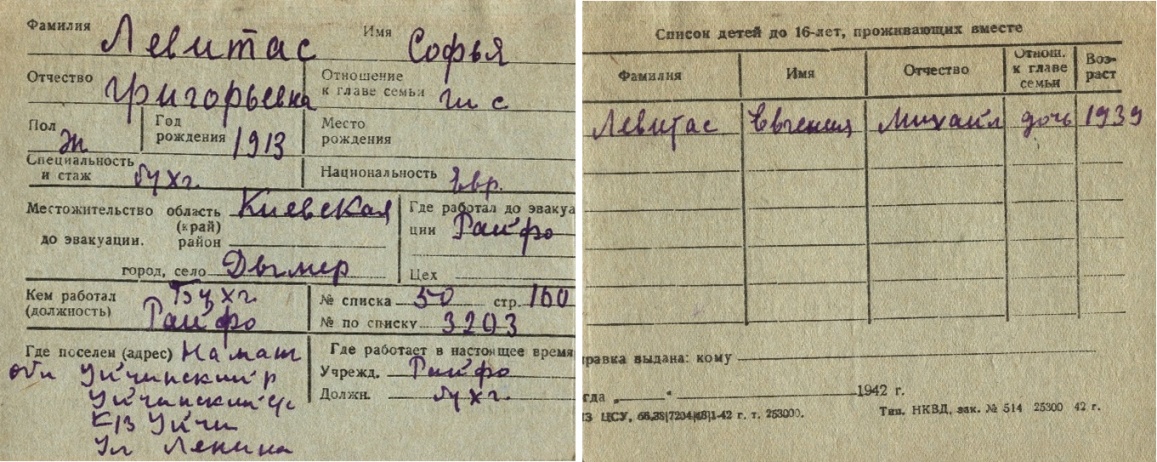 Фамилия Левитас Имя Софья
Отчество Григорьевна Отношение к главе семьи
Пол Ж Год рождения 1913 Место рождения
Специальность и стаж бухг. Национальность евр.
Местожительство область (край) Киевская Где работал до эвакуа
до эвакуации. район ции Райфо
город, село Дымер Цех
Кем работал (должность) Бухг. Райфо № списка 50 стр. 160
№ по списку 3203
Где поселен (адрес) Наманг Где работает в настоящее время
обл Уйчинский р Учрежд. Райфо
Уйчинский с/с Должн. бухг.
К/з Уйчи
Ул Ленина
Список детей до 16-лет, проживающих вместе
Фамилия Имя Отчество Отнош. к главе семьи Воз-раст
Левитас Евгения Михайл дочь 1939
равка выдана: кому
гда „ “ 1942 г.
ЦСУ, т. 253000. Тип. НКВД, зак. № 514 25300 42 г.